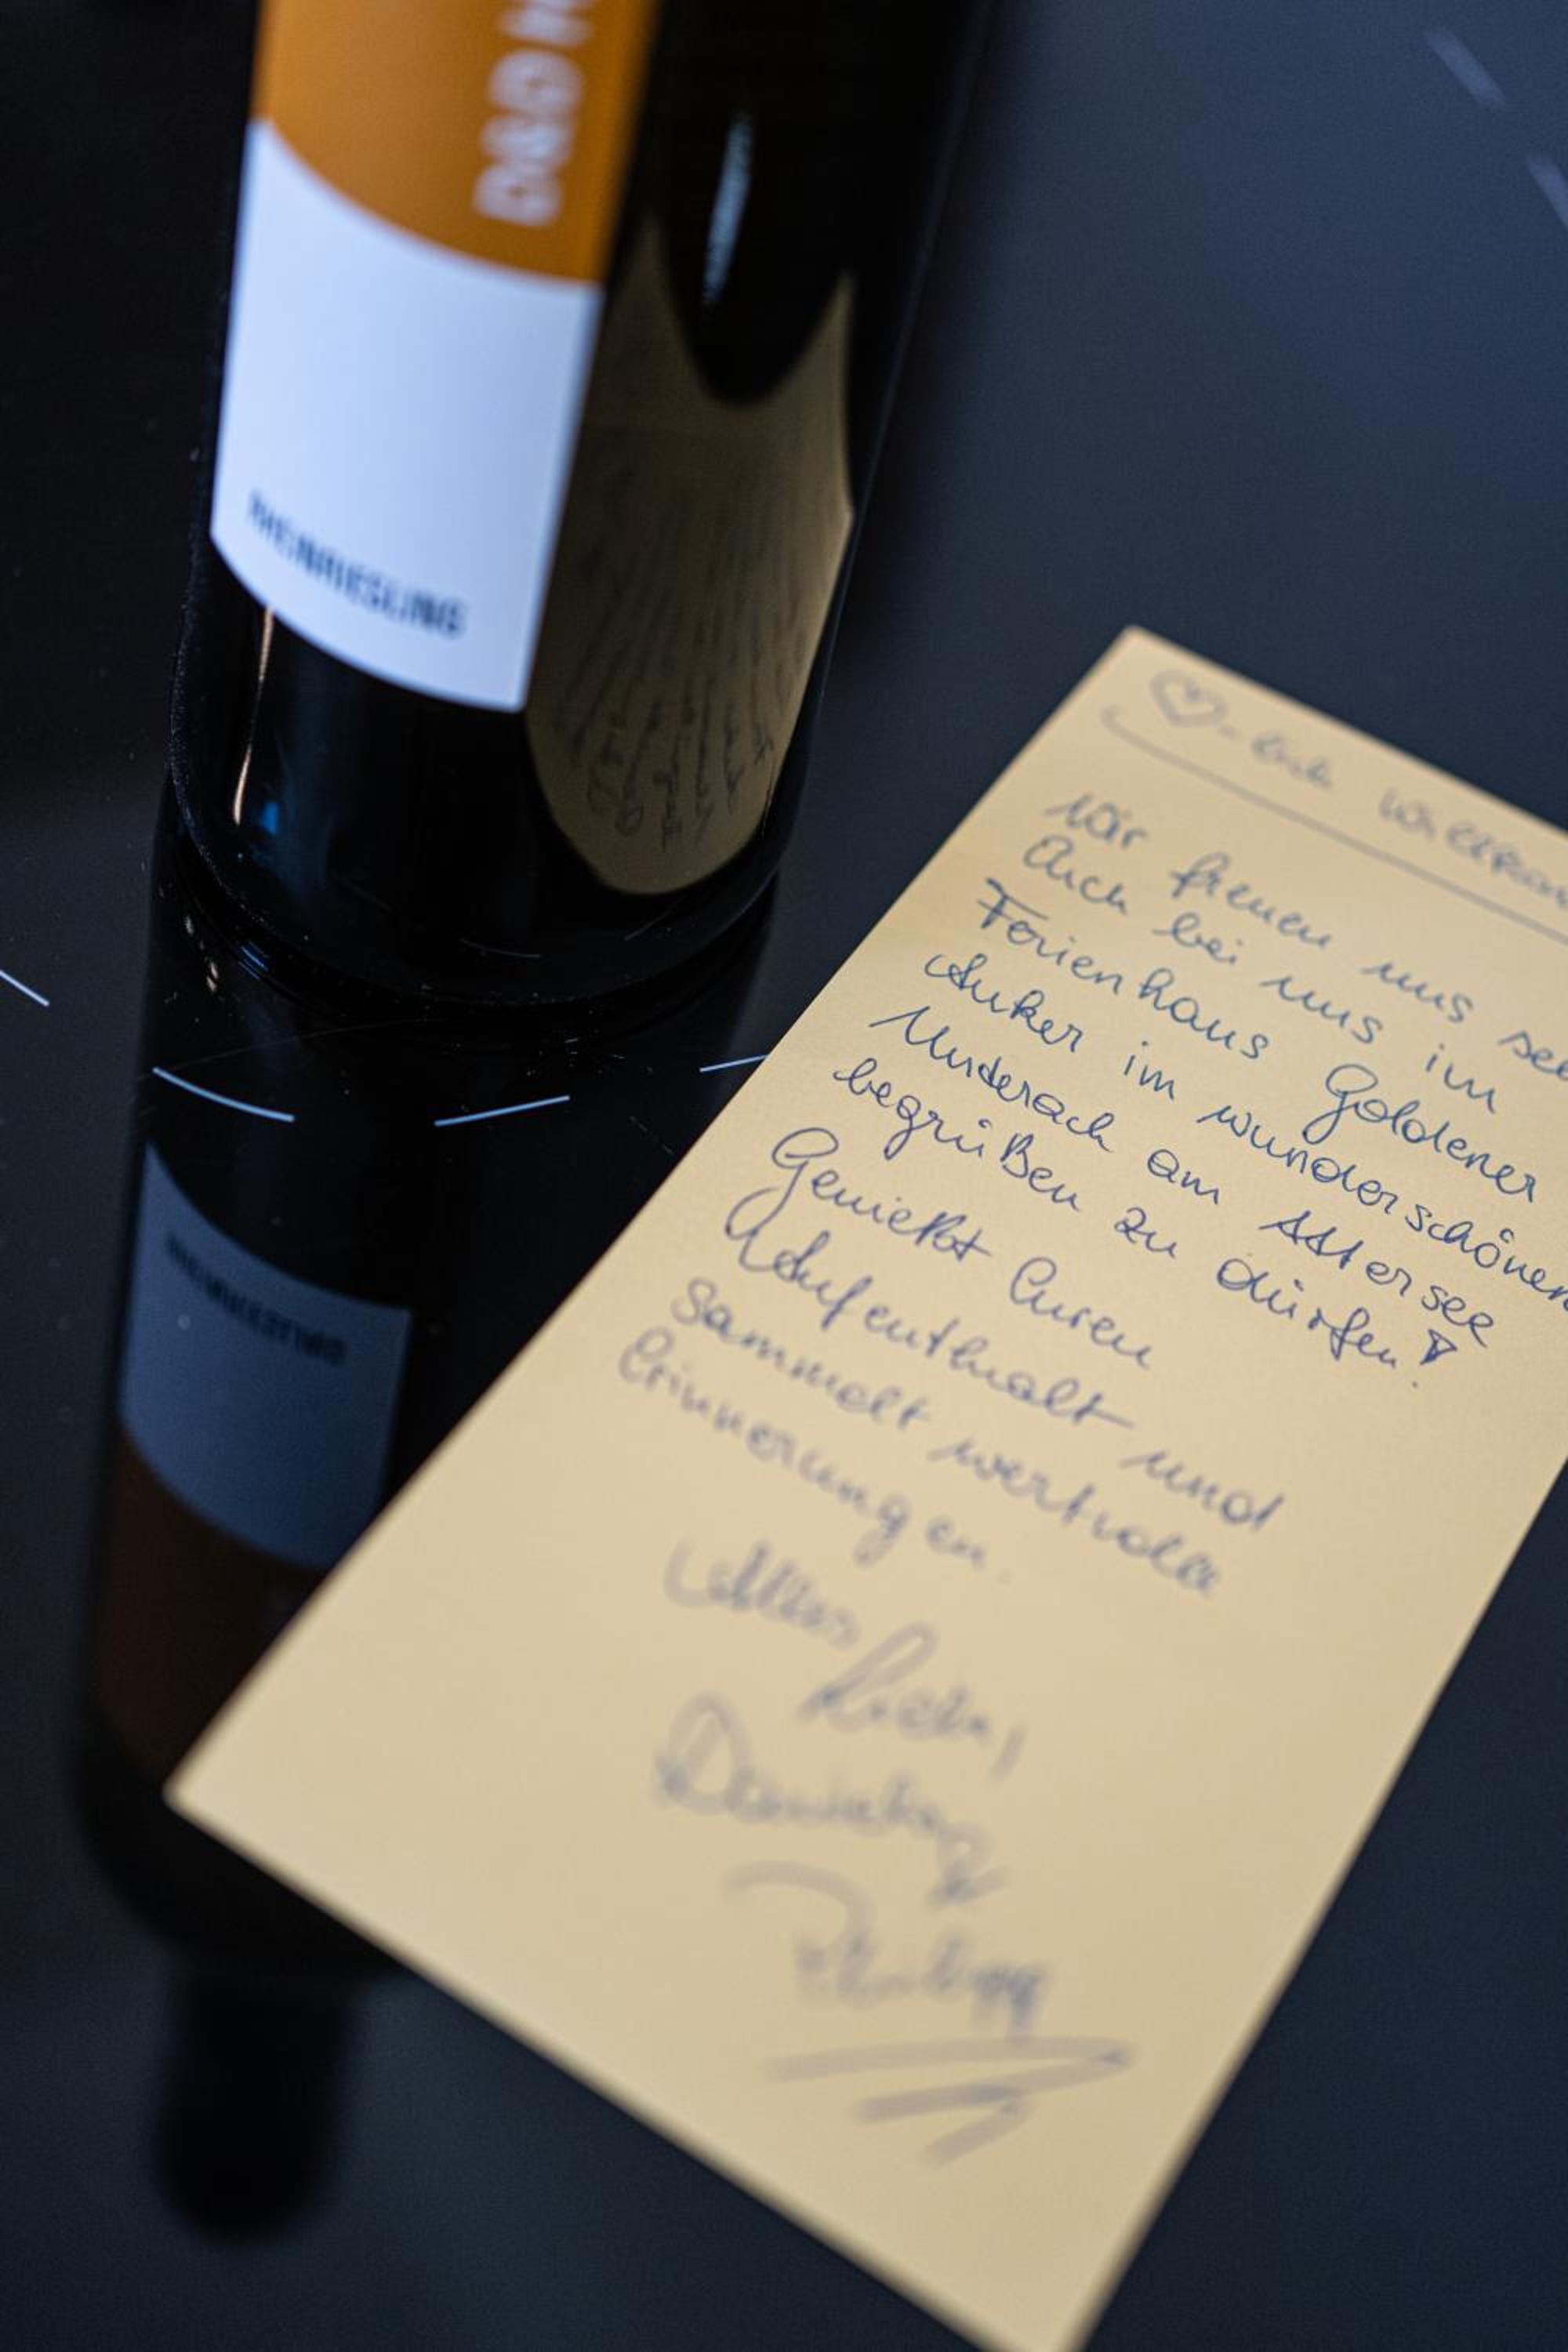 D&D
RHEINRIESLING
♡-lich Willkom
Wir freuen uns se
Euch bei uns im
Ferienhaus Goldener
Anker im wunderschönen
Unterach am Attersee
begrüßen zu dürfen!
Genießt Euren
Aufenthalt und
sammelt wertvolle
Erinnerungen.
Alles Liebe,
Daniela &
Philipp